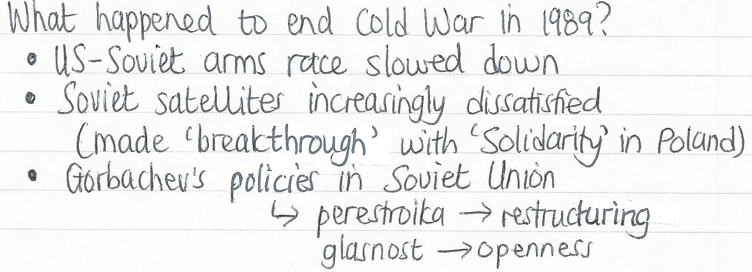 What happened to end Cold War in 1989?
• US-Soviet arms race slowed down
• Soviet satellites increasingly dissatisfied
(made 'breakthrough' with 'Solidarity' in Poland)
• Gorbachev's policies in Soviet Union
↳ perestroika → restructuring
glasnost → openness